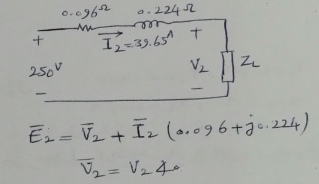 0.096Ω 0.224Ω
+ I̅₂=39.65ᴬ +
250ⱽ V₂ ZL
− −
E̅₂ = V̅₂ + I̅₂ (0.096+j0.224)
V̅₂ = V₂ ∠0